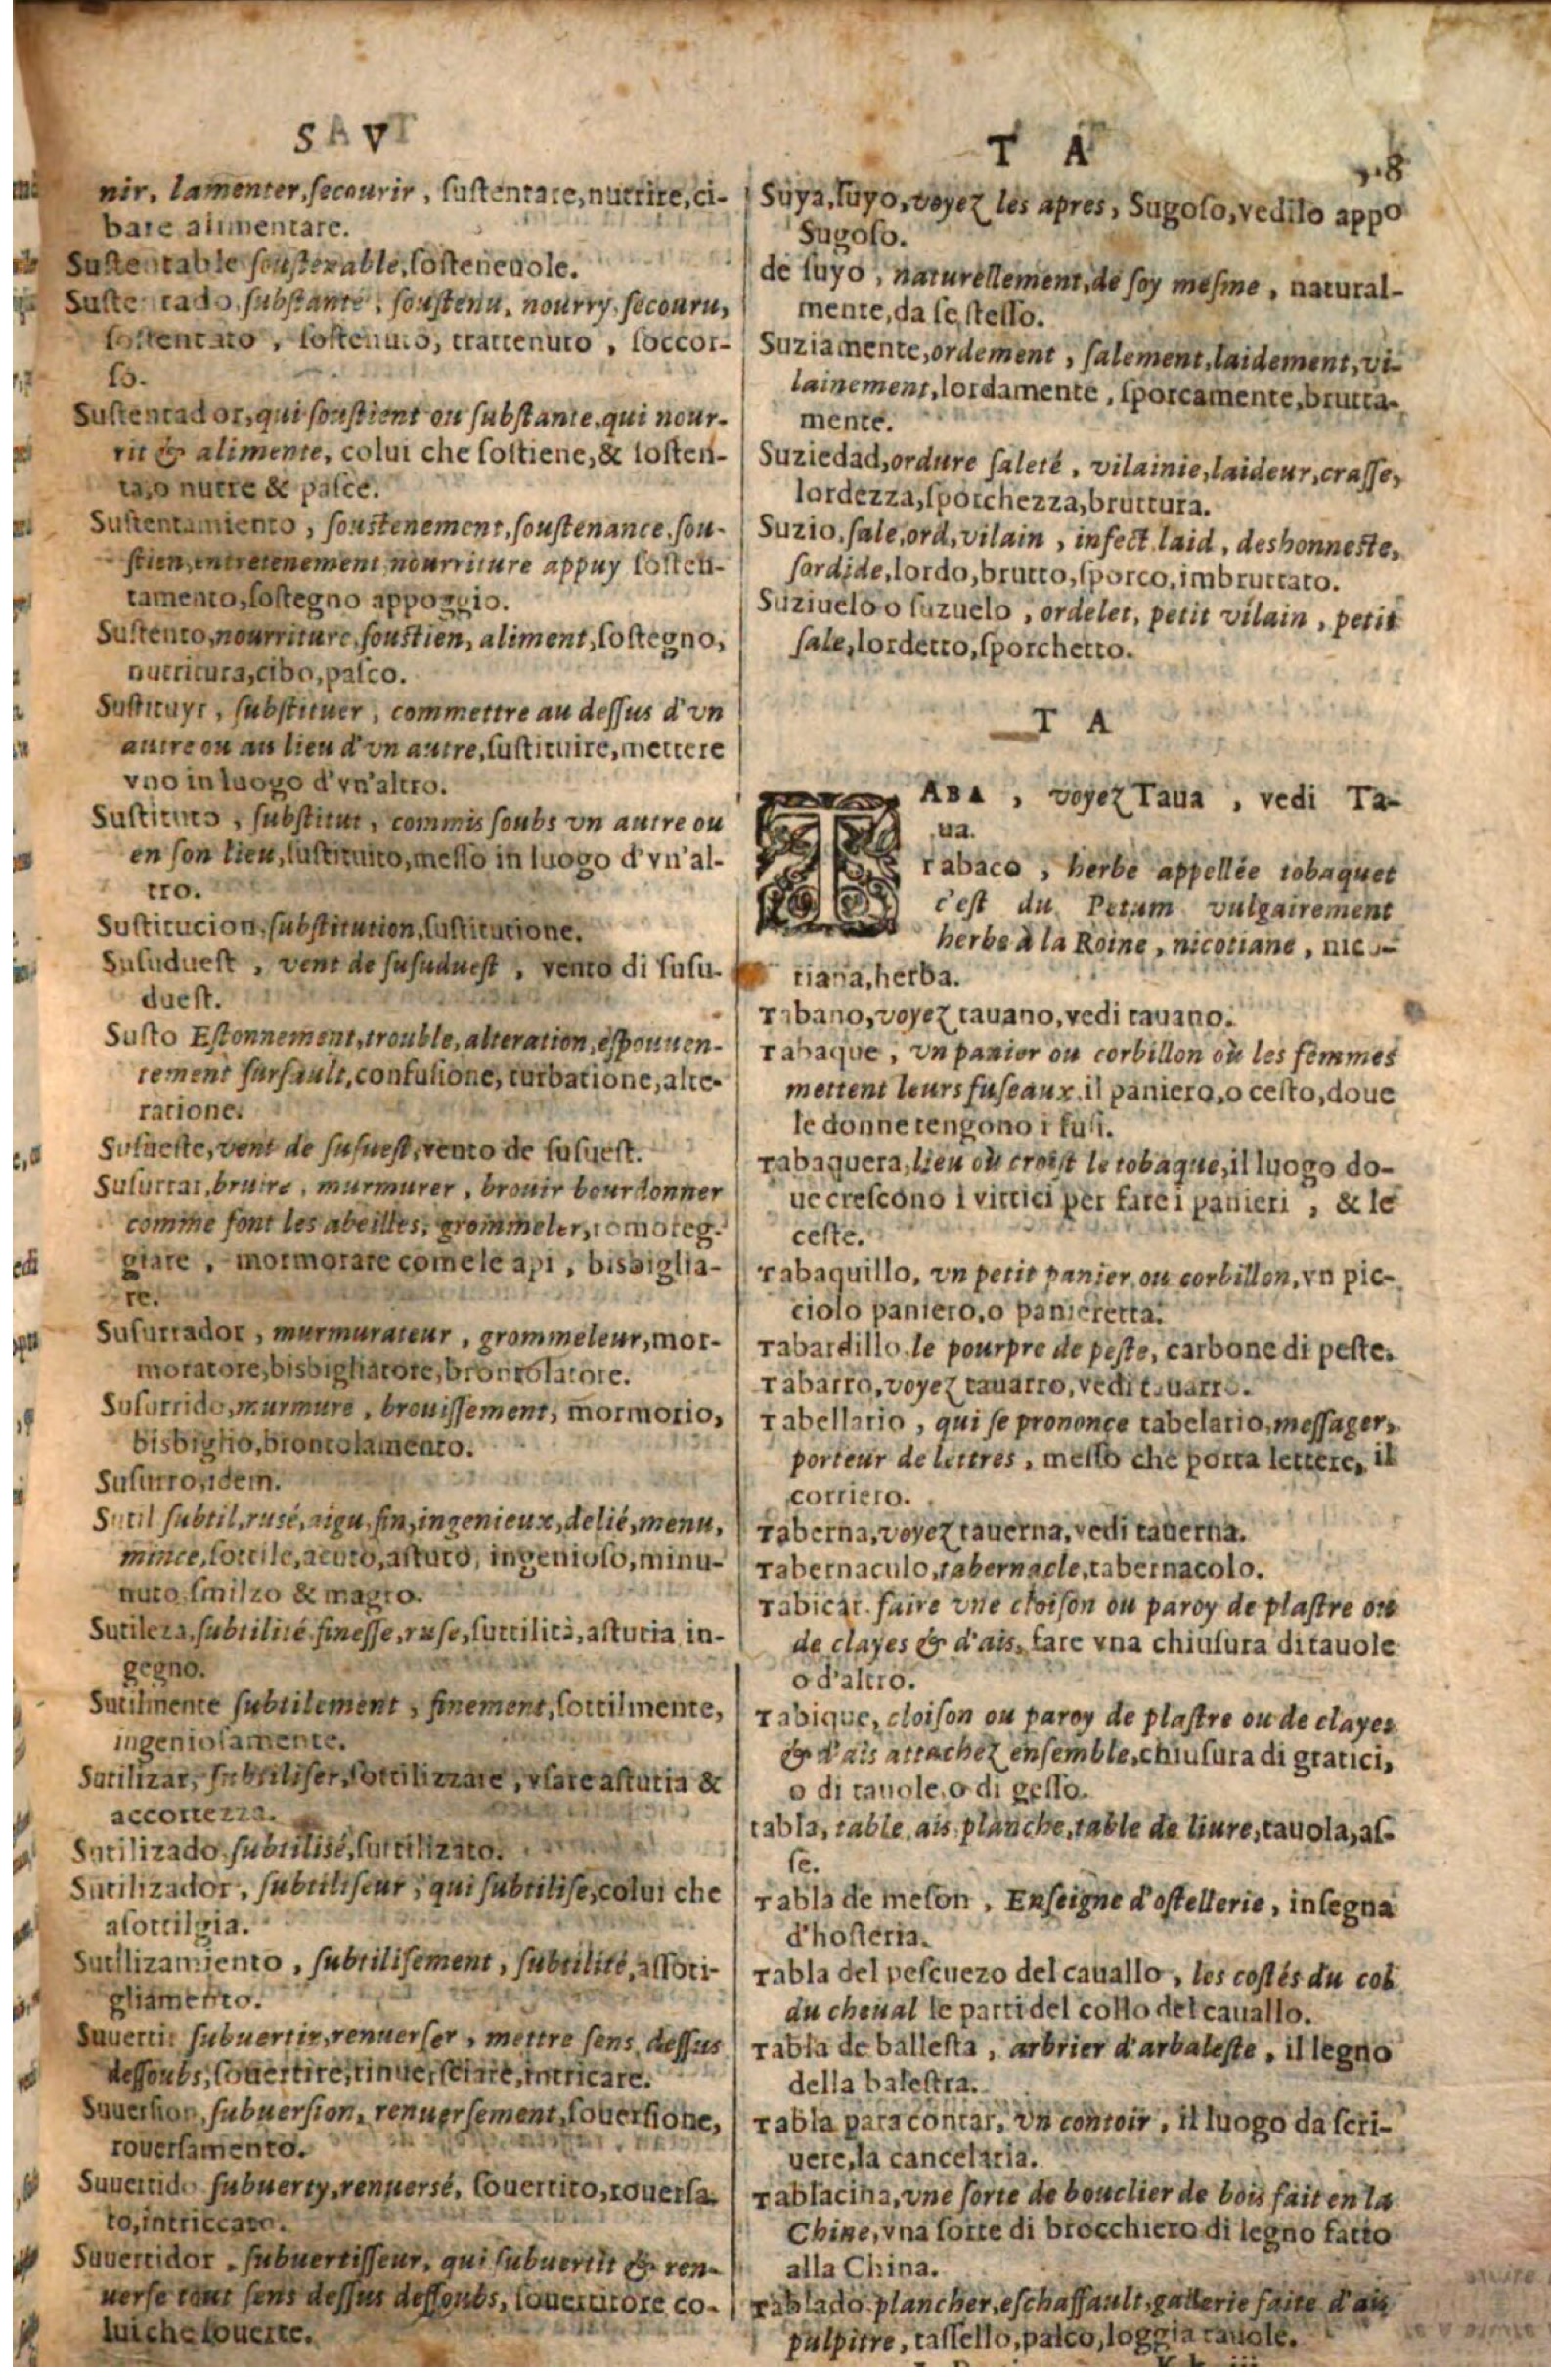 S V
nir, lamenter, ſecourir, ſuſtentare, nutrire, ci-
bare alimentare.
Suſtentable ſouſtenable, ſoſteneuole.
Suſtentado ſubſanté, ſouſtenu, nourry, ſecouru,
ſoſtentato, ſoſtenuto, trattenuto, ſoccor-
ſo.
Suſtentador, qui ſouſtient ou ſubſtante, qui nour-
rit & alimente, colui che ſoſtiene, & ſoſten-
ta, o nutre & paſce.
Suſtentamiento, ſouſtenement, ſouſtenance, ſou-
ſtien, entretenement nourriture appuy ſoſten-
tamento, ſoſtegno appoggio.
Suſtento, nourriture, ſouſtien, aliment, ſoſtegno,
nutritura, cibo, paſco.
Suſtituyr, ſubſtituer, commettre au deſſus d'vn
autre ou au lieu d'vn autre, ſuſtituire, mettere
vno in luogo d'vn'altro.
Suſtituto, ſubſtitut, commis ſoubs vn autre ou
en ſon lieu, ſuſtituito, meſſo in luogo d'vn'al-
tro.
Suſtitucion, ſubſtitution, ſuſtitutione.
Suſudueſt, vent de ſuſudueſt, vento di ſuſu-
dueſt.
Suſto Eſtonnement, trouble, alteration, eſpouuen-
tement ſurſault, confuſione, turbatione, alte-
ratione.
Suſueſte, vent de ſuſueſt, vento de ſuſueſt.
Suſurrar, bruire, murmurer, brouir bourdonner
comme font les abeilles, grommeler, romoreg-
giare, mormorare come le api, bisbiglia-
re.
Suſurrador, murmurateur, grommeleur, mor-
moratore, bisbigliatore, brontolatore.
Suſurrido, murmure, brouiſſement, mormorio,
bisbiglio, brontolamento.
Suſurro, idem.
Sutil ſubtil, ruſé, aigu, fin, ingenieux, delié, menu,
mince, ſottile, acuto, aſtuto, ingenioſo, minu-
nuto, ſmilzo & magro.
Sutileza, ſubtilité fineſſe, ruſe, ſuttilità, aſtutia in-
gegno.
Sutilmente ſubtilement, finement, ſottilmente,
ingenioſamente.
Sutilizar, ſubtiliſer, ſottilizzare, vſare aſtutia &
accortezza.
Sutilizado ſubtiliſé, ſuttilizato.
Sutilizador, ſubtiliſeur, qui ſubtiliſe, colui che
aſottilgia.
Sutilizamiento, ſubtiliſement, ſubtilité, aſſoti-
gliamento.
Suuertir ſubuertir, renuerſer, mettre ſens deſſus
deſſoubs, ſouertire, rinuerſciare, intricare.
Suuerſion, ſubuerſion, renuerſement, ſouerſione,
rouerſamento.
Suuertido ſubuerty, renuerſé, ſouertito, rouerſa-
to, intriccato.
Suuertidor, ſubuertiſſeur, qui ſubuertit & ren-
uerſe tout ſens deſſus deſſoubs, ſouertitore co-
lui che ſouerte.
T A
Suya, ſuyo, voyez les apres, Sugoſo, vedilo appo
Sugoſo.
de ſuyo, naturellement, de ſoy meſme, natural-
mente, da ſe ſteſſo.
Suziamente, ordement, ſalement, laidement, vi-
lainement, lordamente, ſporcamente, brutta-
mente.
Suziedad, ordure ſaleté, vilainie, laideur, craſſe,
lordezza, ſporchezza, bruttura.
Suzio, ſale, ord, vilain, infect, laid, deshonneſte,
ſordide, lordo, brutto, ſporco, imbruttato.
Suziuelo o ſuzuelo, ordelet, petit vilain, petit
ſale, lordetto, ſporchetto.
T A
TABA, voyez Taua, vedi Ta-
ua.
Tabaco, herbe appellée tobaquet
c'eſt du Petum vulgairement
herbe à la Roine, nicotiane, nico-
tiana, herba.
Tabano, voyez tauano, vedi tauano.
Tabaque, vn panier ou corbillon où les femmes
mettent leurs fuſeaux, il paniero, o ceſto, doue
le donne tengono i fuſi.
Tabaquera, lieu où croiſt le tobaque, il luogo do-
ue creſcono i vittici per fare i panieri, & le
ceſte.
Tabaquillo, vn petit panier ou corbillon, vn pic-
ciolo paniero, o panieretta.
Tabardillo, le pourpre de peſte, carbone di peſte.
Tabarro, voyez tauarro, vedi tauarro.
Tabellario, qui ſe prononce tabelario, meſſager,
porteur de lettres, meſſo che porta lettere, il
corriero.
Taberna, voyez tauerna, vedi tauerna.
Tabernaculo, tabernacle, tabernacolo.
Tabicar, faire vne cloiſon ou paroy de plaſtre ou
de clayes & d'ais, fare vna chiuſura di tauole
o d'altro.
Tabique, cloiſon ou paroy de plaſtre ou de clayes
& d'ais attachez enſemble, chiuſura di gratici,
o di tauole, o di geſſo.
tabla, table, ais, planche, table de liure, tauola, aſ-
ſe.
Tabla de meſon, Enſeigne d'oſtellerie, inſegna
d'hoſteria.
Tabla del peſcuezo del cauallo, les coſtés du col
du cheual le parti del collo del cauallo.
Tabla de balleſta, arbrier d'arbaleſte, il legno
della baleſtra.
Tabla para contar, vn contoir, il luogo da ſcri-
uere, la cancelaria.
Tablacina, vne ſorte de bouclier de bois fait en la
Chine, vna ſorte di brocchiero di legno fatto
alla China.
Tablado plancher, eſchaffault, gallerie faite d'ais
pulpitre, taſſello, palco, loggia tauole.